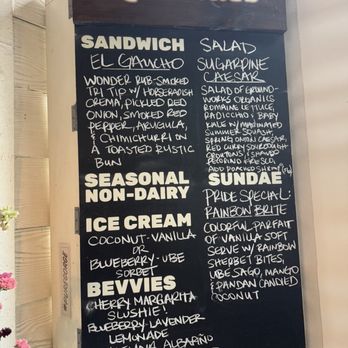 SANDWICH
EL GAUCHO
WONDER RUB-SMOKED
TRI TIP W/ HORSERADISH
CREMA, PICKLED RED
ONION, SMOKED RED
PEPPER, ARUGULA,
& CHIMICHURRI ON
A TOASTED RUSTIC
BUN
SALAD
SUGARDINE
CAESAR
SALAD OF GROUND-
WORKS ORGANICS
ROMAINE LETTUCE,
RADICCHIO & BABY
KALE W/ MARINATED
SUMMER SQUASH,
SPRING ONION CAESAR,
RED CURRY SOURDOUGH
CROUTONS, & SHAVED
PECORINO FRESCO.
ADD POACHED SHRIMP
SEASONAL
NON-DAIRY
ICE CREAM
COCONUT-VANILLA
OR
BLUEBERRY-UBE
SORBET
SUNDAE
PRIDE SPECIAL:
RAINBOW BRITE
COLORFUL PARFAIT
OF VANILLA SOFT
SERVE W/ RAINBOW
SHERBET BITES,
UBE SAGO, MANGO
& PANDAN CANDIED
COCONUT
BEVVIES
CHERRY MARGARITA
SLUSHIE!
BLUEBERRY-LAVENDER
LEMONADE
ALBARIÑO